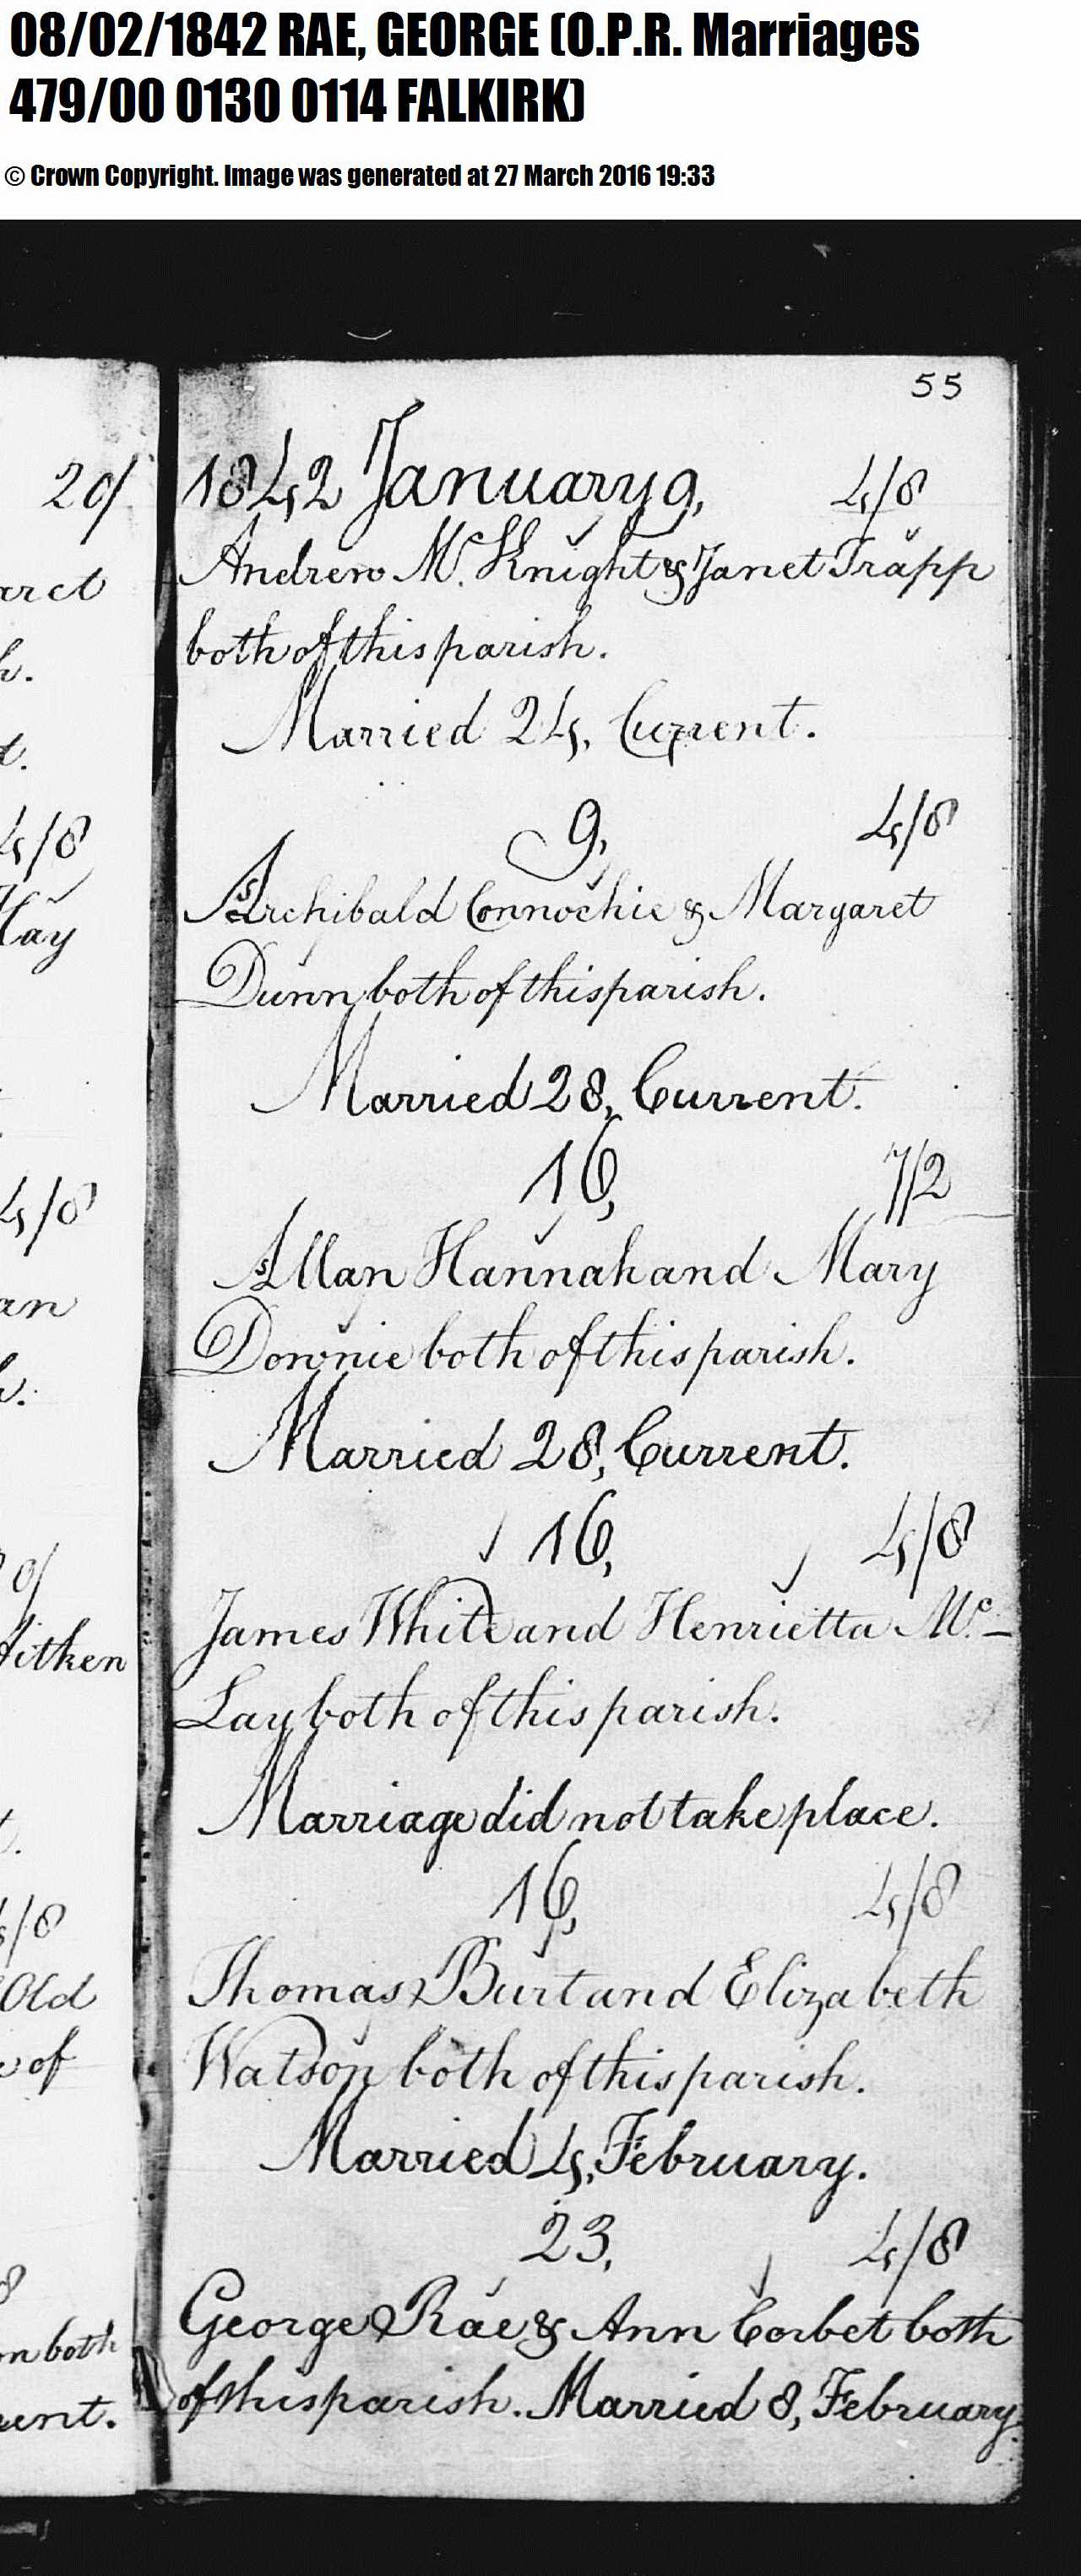 08/02/1842 RAE, GEORGE (O.P.R. Marriages
479/00 0130 0114 FALKIRK)
© Crown Copyright. Image was generated at 27 March 2016 19:33
55
20/
h.
4/8
Hay
4/8
an
h.
0/
Aitken
4/8
Old
of
8
both
1842 January 9, 4/8
Andrew Mc. Knight & Janet Trapp
both of this parish.
Married 24, Current.
9, 4/8
Archibald Connochie & Margaret
Dunn both of this parish.
Married 28, Current.
16, 7/2
Allan Hannah and Mary
Downie both of this parish.
Married 28, Current.
16, 4/8
James White and Henrietta Mc.-
Lay both of this parish.
Marriage did not take place.
16, 4/8
Thomas Burt and Elizabeth
Watson both of this parish.
Married 4, February.
23, 4/8
George Rae & Ann Corbet both
of this parish. Married 8, February.